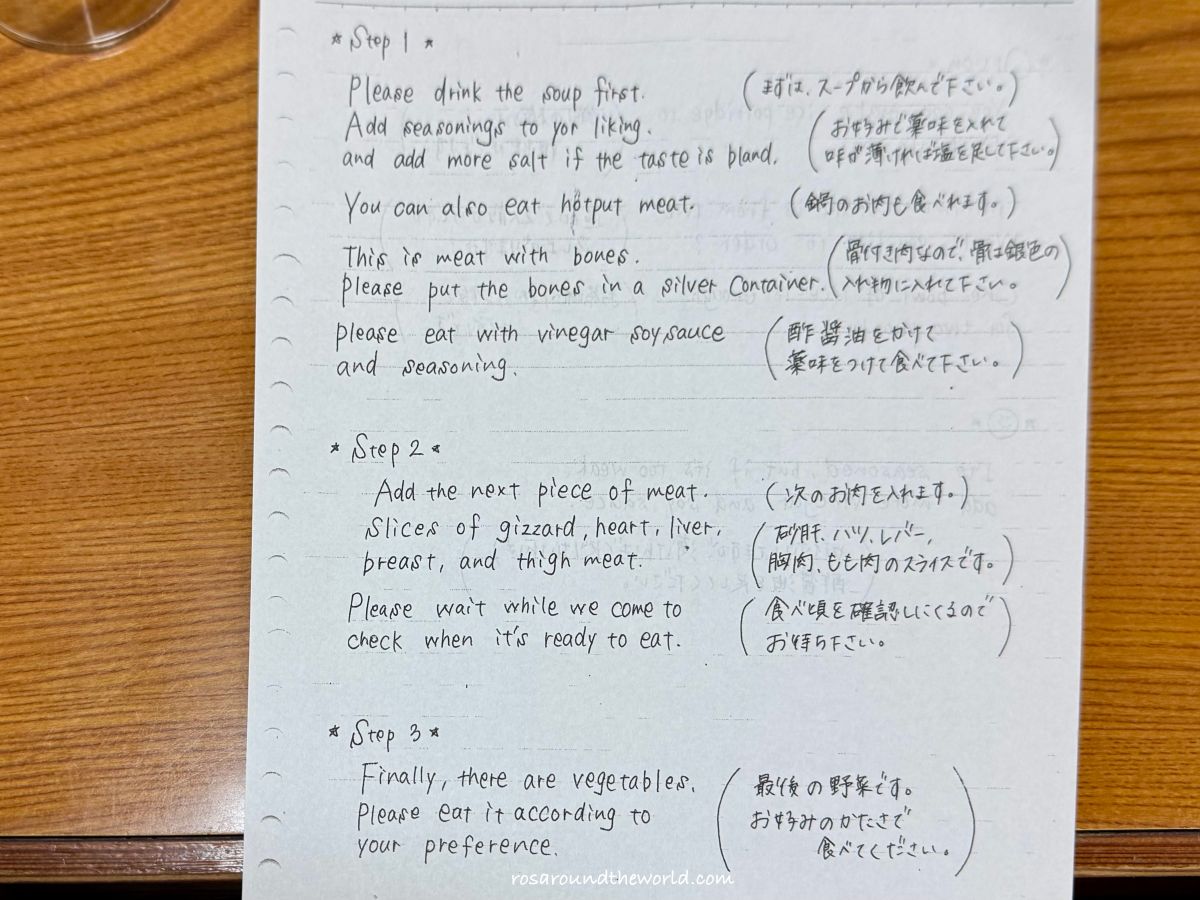 * Step 1 *
Please drink the soup first. (まずは、スープから飲んで下さい。)
Add seasonings to yor liking. (お好みで薬味を入れて
and add more salt if the taste is bland. 味が薄ければ塩を足して下さい。)
You can also eat hotput meat. (鍋のお肉も食べれます。)
This is meat with bones. (骨付き肉なので、骨は銀色の
Please put the bones in a silver container. 入れ物に入れて下さい。)
please eat with vinegar soy sauce (酢醤油をかけて
and seasoning. 薬味をつけて食べて下さい。)
* Step 2 *
Add the next piece of meat. (次のお肉を入れます。)
Slices of gizzard, heart, liver, (砂肝、ハツ、レバー、
breast, and thigh meat. 胸肉、もも肉のスライスです。)
Please wait while we come to (食べ頃を確認しにくるので
check when it's ready to eat. お待ち下さい。)
* Step 3 *
Finally, there are vegetables. (最後の野菜です。
Please eat it according to お好みのかたさで
your preference. 食べてください。)
rosaroundtheworld.com